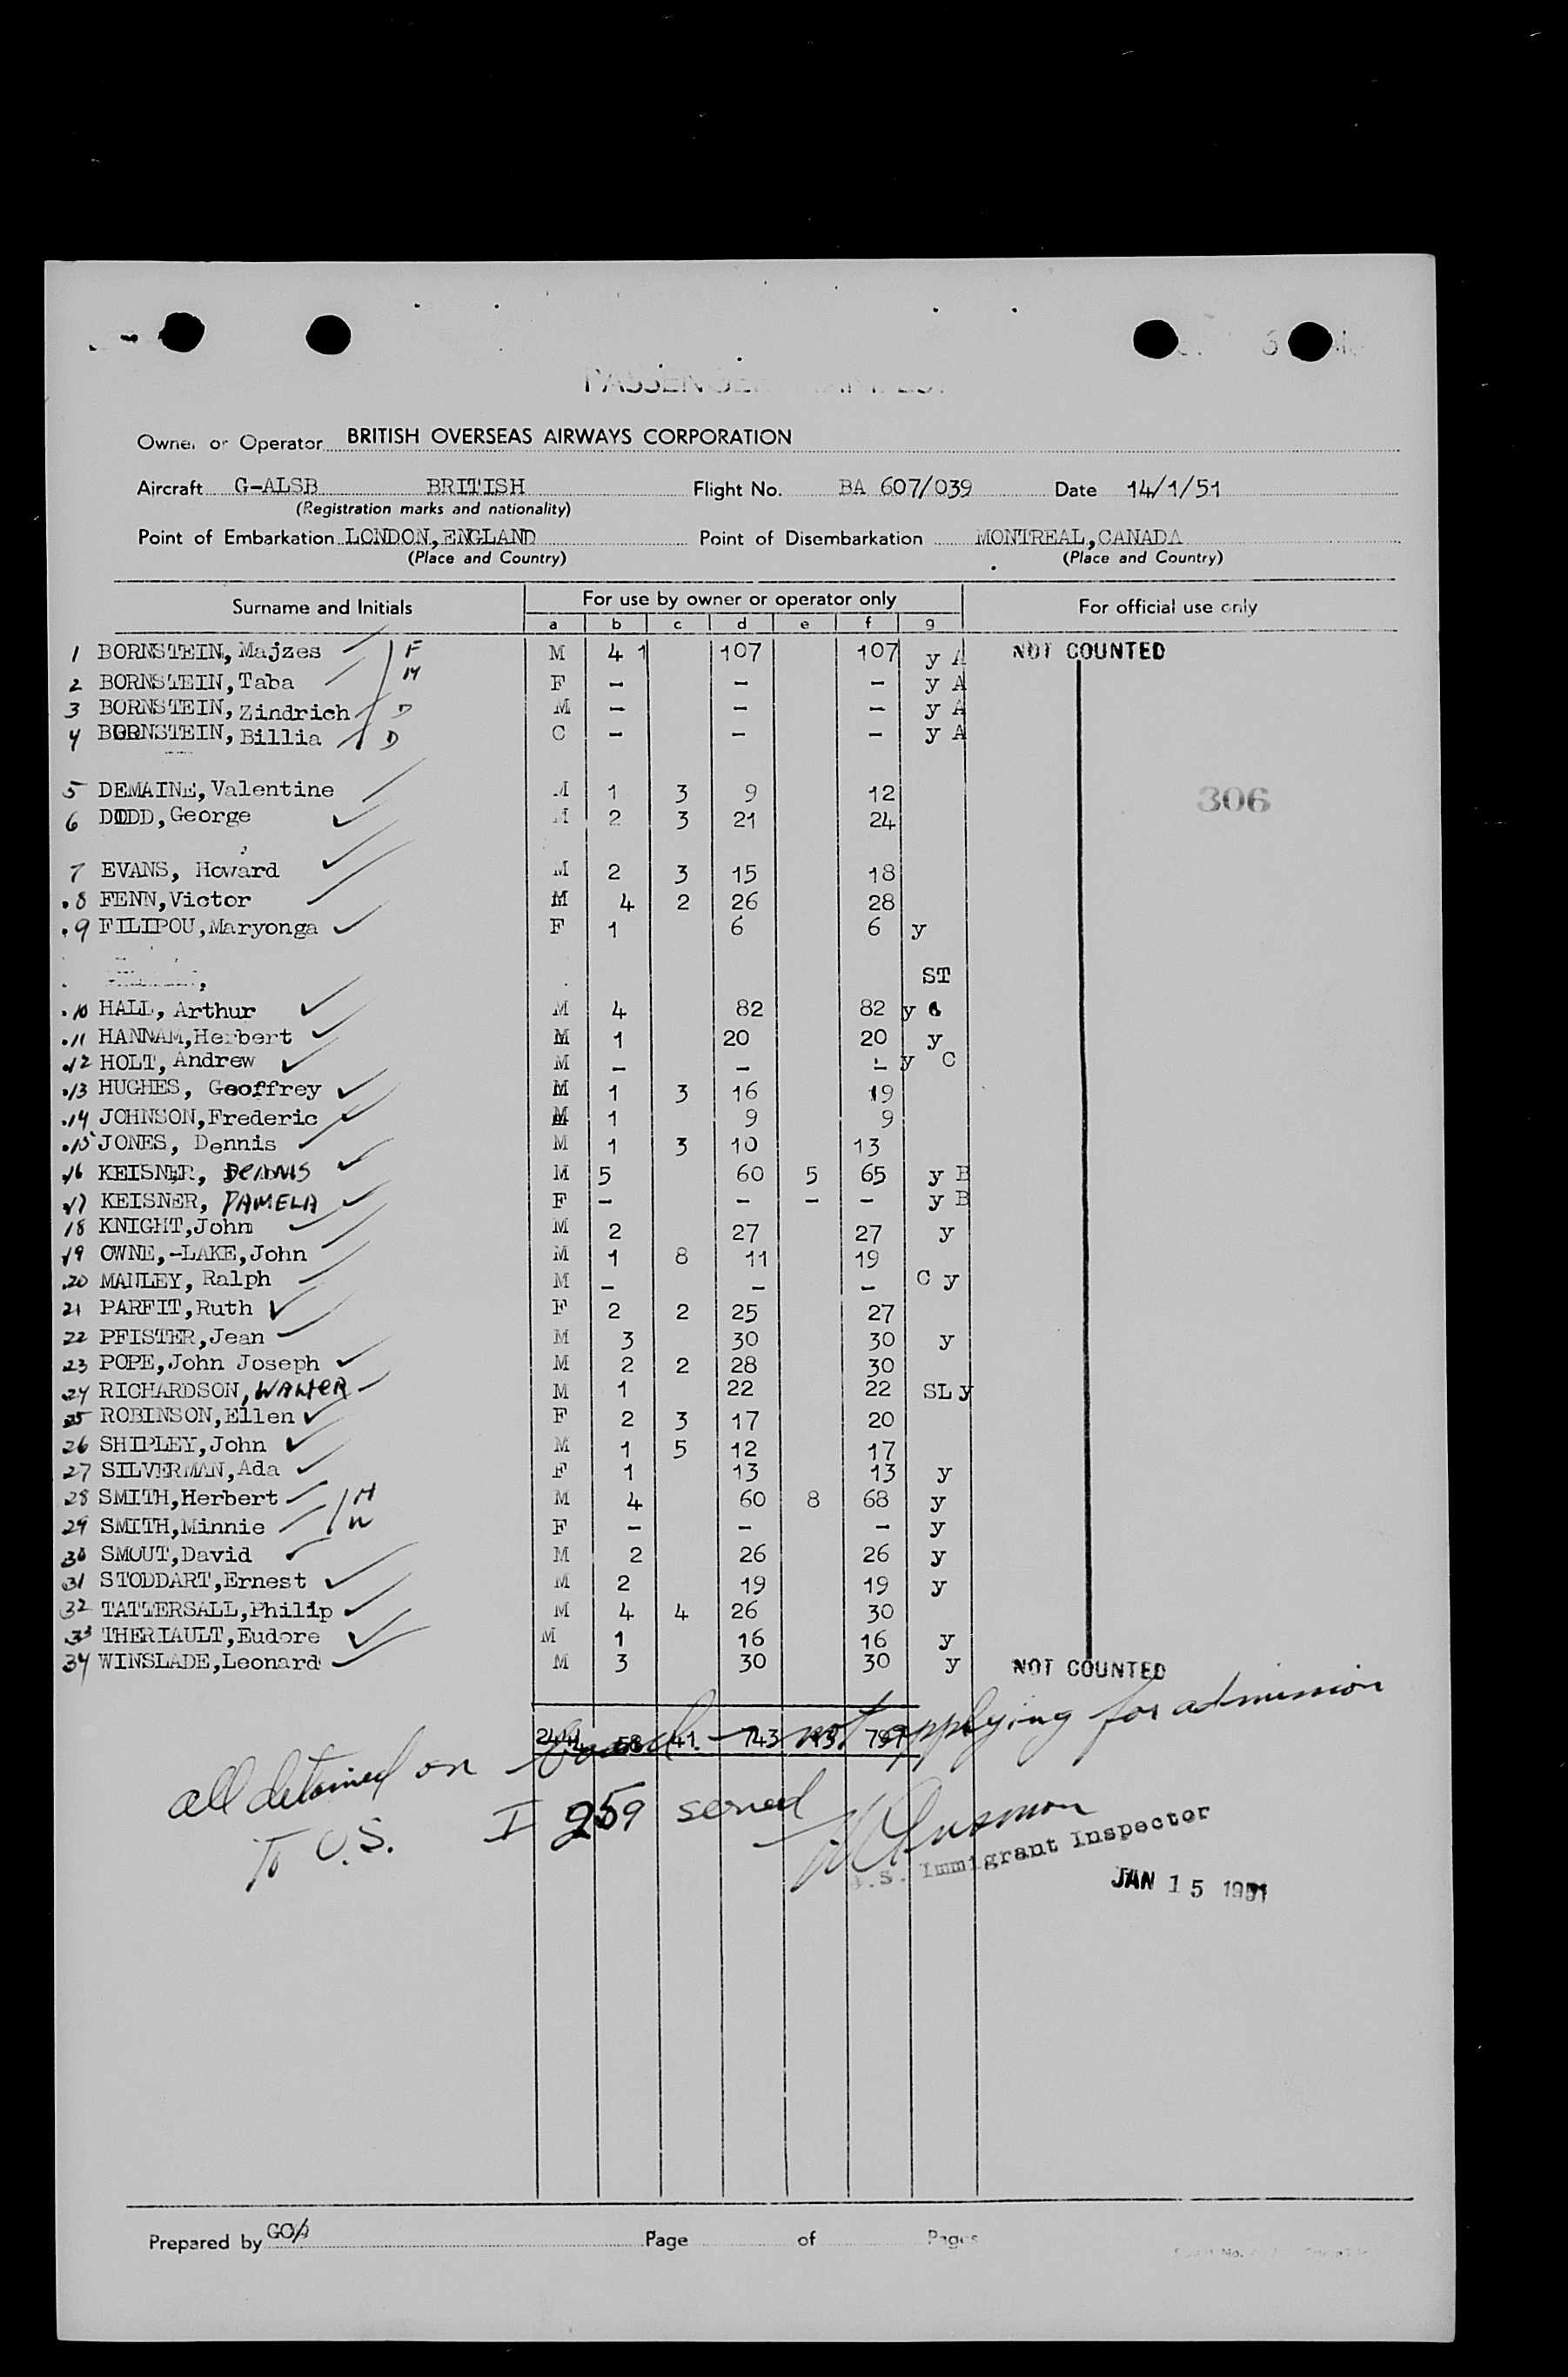 Owner or Operator BRITISH OVERSEAS AIRWAYS CORPORATION
Aircraft G-ALSB BRITISH Flight No. BA 607/039 Date 14/1/51
(Registration marks and nationality)
Point of Embarkation LONDON, ENGLAND Point of Disembarkation MONTREAL, CANADA
(Place and Country) (Place and Country)
Surname and Initials For use by owner or operator only For official use only
a b c d e f g
1 BORNSTEIN, Majzes F M 4 1 107 107 y A NOT COUNTED
2 BORNSTEIN, Taba M F - - - y A
3 BORNSTEIN, Zindrich D M - - - y A
4 BORNSTEIN, Billia D C - - - y A
5 DEMAINE, Valentine M 1 3 9 12 306
6 DODD, George M 2 3 21 24
7 EVANS, Howard M 2 3 15 18
8 FENN, Victor M 4 2 26 28
9 FILIPOU, Maryonga F 1 6 6 y
ST
10 HALL, Arthur M 4 82 82 y
11 HANNAM, Herbert M 1 20 20 y
12 HOLT, Andrew M - - - y C
13 HUGHES, Geoffrey M 1 3 16 19
14 JOHNSON, Frederic M 1 9 9
15 JONES, Dennis M 1 3 10 13
16 KEISNER, DENNIS M 5 60 5 65 y B
17 KEISNER, PAMELA F - - - - y B
18 KNIGHT, John M 2 27 27 y
19 OWNE,-LAKE, John M 1 8 11 19
20 MANLEY, Ralph M - - - C y
21 PARFIT, Ruth F 2 2 25 27
22 PFISTER, Jean M 3 30 30 y
23 POPE, John Joseph M 2 2 28 30
24 RICHARDSON, WALTER M 1 22 22 SL y
25 ROBINSON, Ellen F 2 3 17 20
26 SHIPLEY, John M 1 5 12 17
27 SILVERMAN, Ada F 1 13 13 y
28 SMITH, Herbert H M 4 60 8 68 y
29 SMITH, Minnie W F - - - y
30 SMOUT, David M 2 26 26 y
31 STODDART, Ernest M 2 19 19 y
32 TATTERSALL, Philip M 4 4 26 30
33 THERIAULT, Eudore M 1 16 16 y
34 WINSLADE, Leonard M 3 30 30 y NOT COUNTED
58 41 743 13 797
all detained on board - not applying for admission
To U.S. I 259 served
U.S. Immigrant Inspector
JAN 15 1951
Prepared by Page of Pages